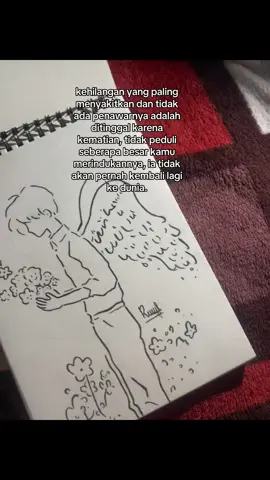 kehilangan yang paling
menyakitkan dan tidak
ada penawarnya adalah
ditinggal karena
kematian, tidak peduli
seberapa besar kamu
merindukannya, ia tidak
akan pernah kembali lagi
ke dunia.